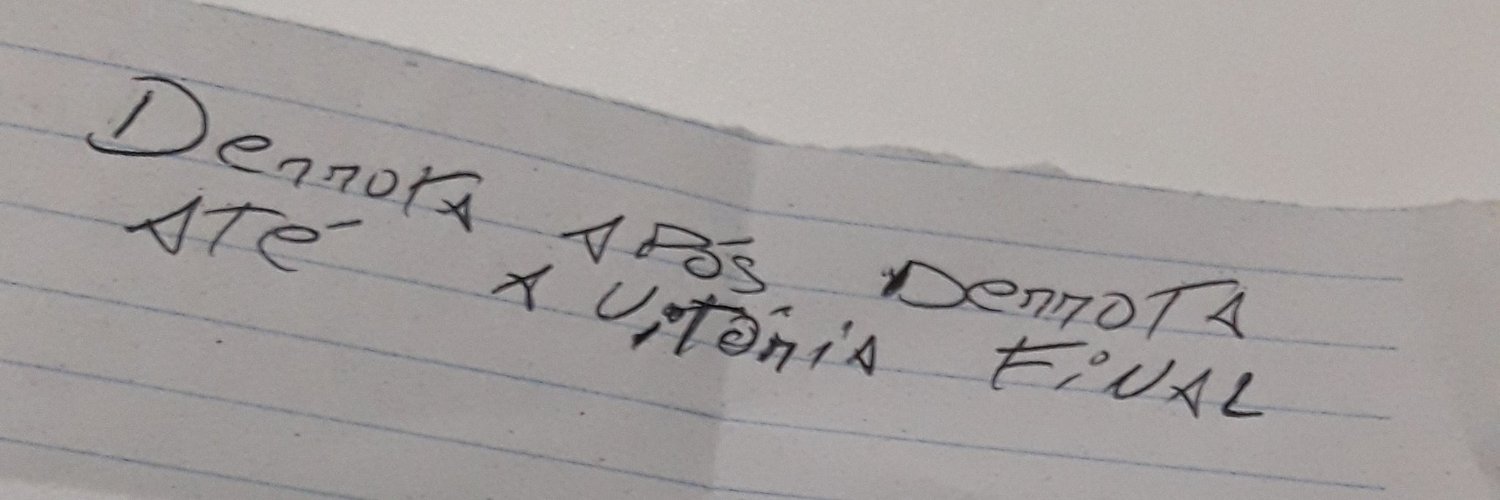 Derrota após Derrota
Até a vitória final